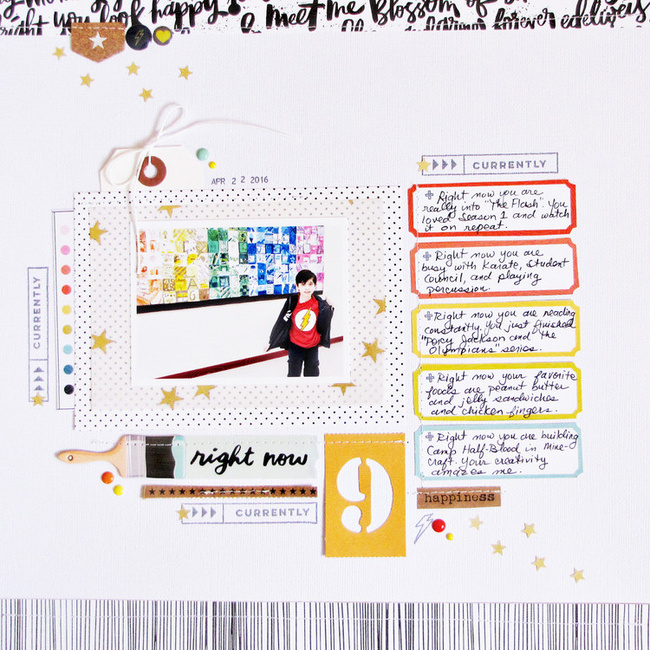 right you look happy & meet me Blossom of
forever
APR 22 2016
CURRENTLY
CURRENTLY
Right now you are
really into "The Flash". You
loved Season 1 and watch
it on repeat.
Right now you are
busy with Karate, Student
Council, and playing
percussion.
Right now you are reading
constantly. You just finished
"Percy Jackson and the
Olympians" series.
Right now your favorite
foods are peanut butter
and jelly sandwiches
and chicken fingers.
Right now you are building
Camp Half-Blood in Mine-
craft. Your creativity
amazes me.
right now
9
CURRENTLY
happiness